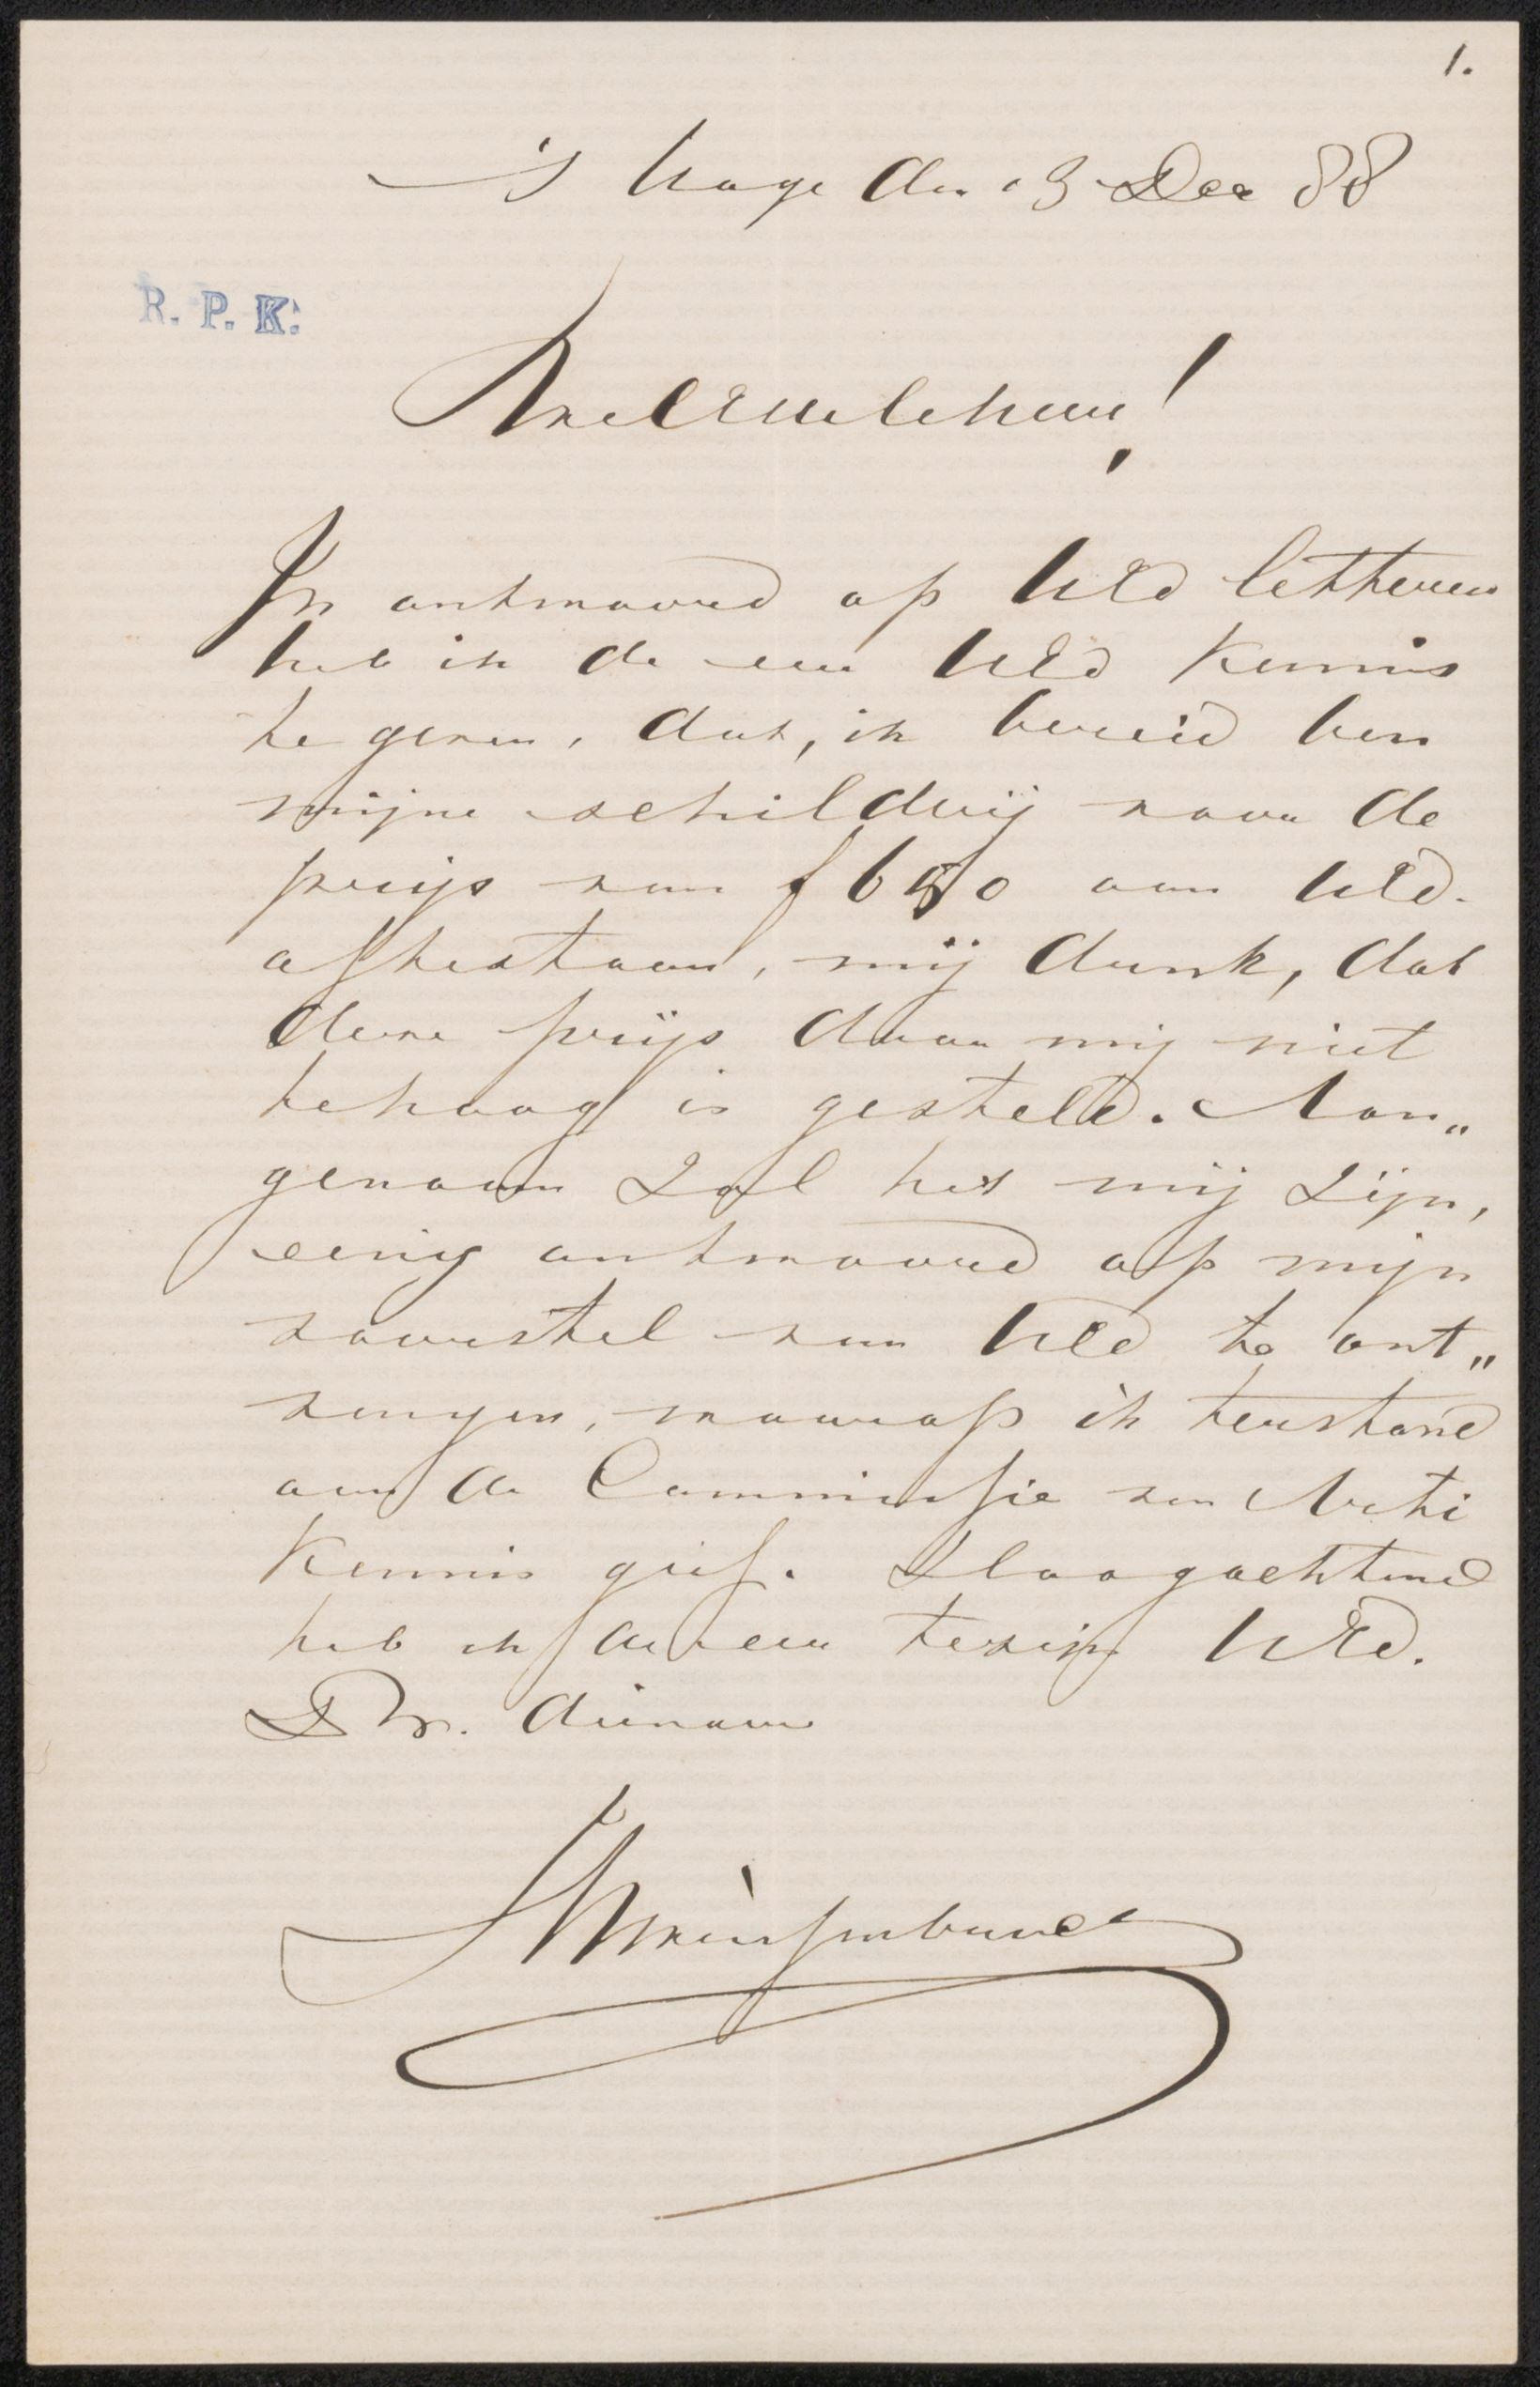 1.
's Hage den 13 Dec 88
R. P. K.
WelEdele heer!
In antwoord op UEd letteren
heb ik de eer UEd kennis
te geven, dat, ik bereid ben
mijne schilderij voor de
prijs van f 650 aan UEd.
aftestaan, mij dunk, dat
deze prijs door mij niet
te hoog is gesteld. Aan„
genaam zal het mij zijn,
eenig antwoord op mijn
voorstel van UEd te ont„
vangen, waarop ik terstond
aan de Commissie van Arti
kennis geef. Hoogachtend
heb ik de eer te zijn UEd.
D W. dienaar